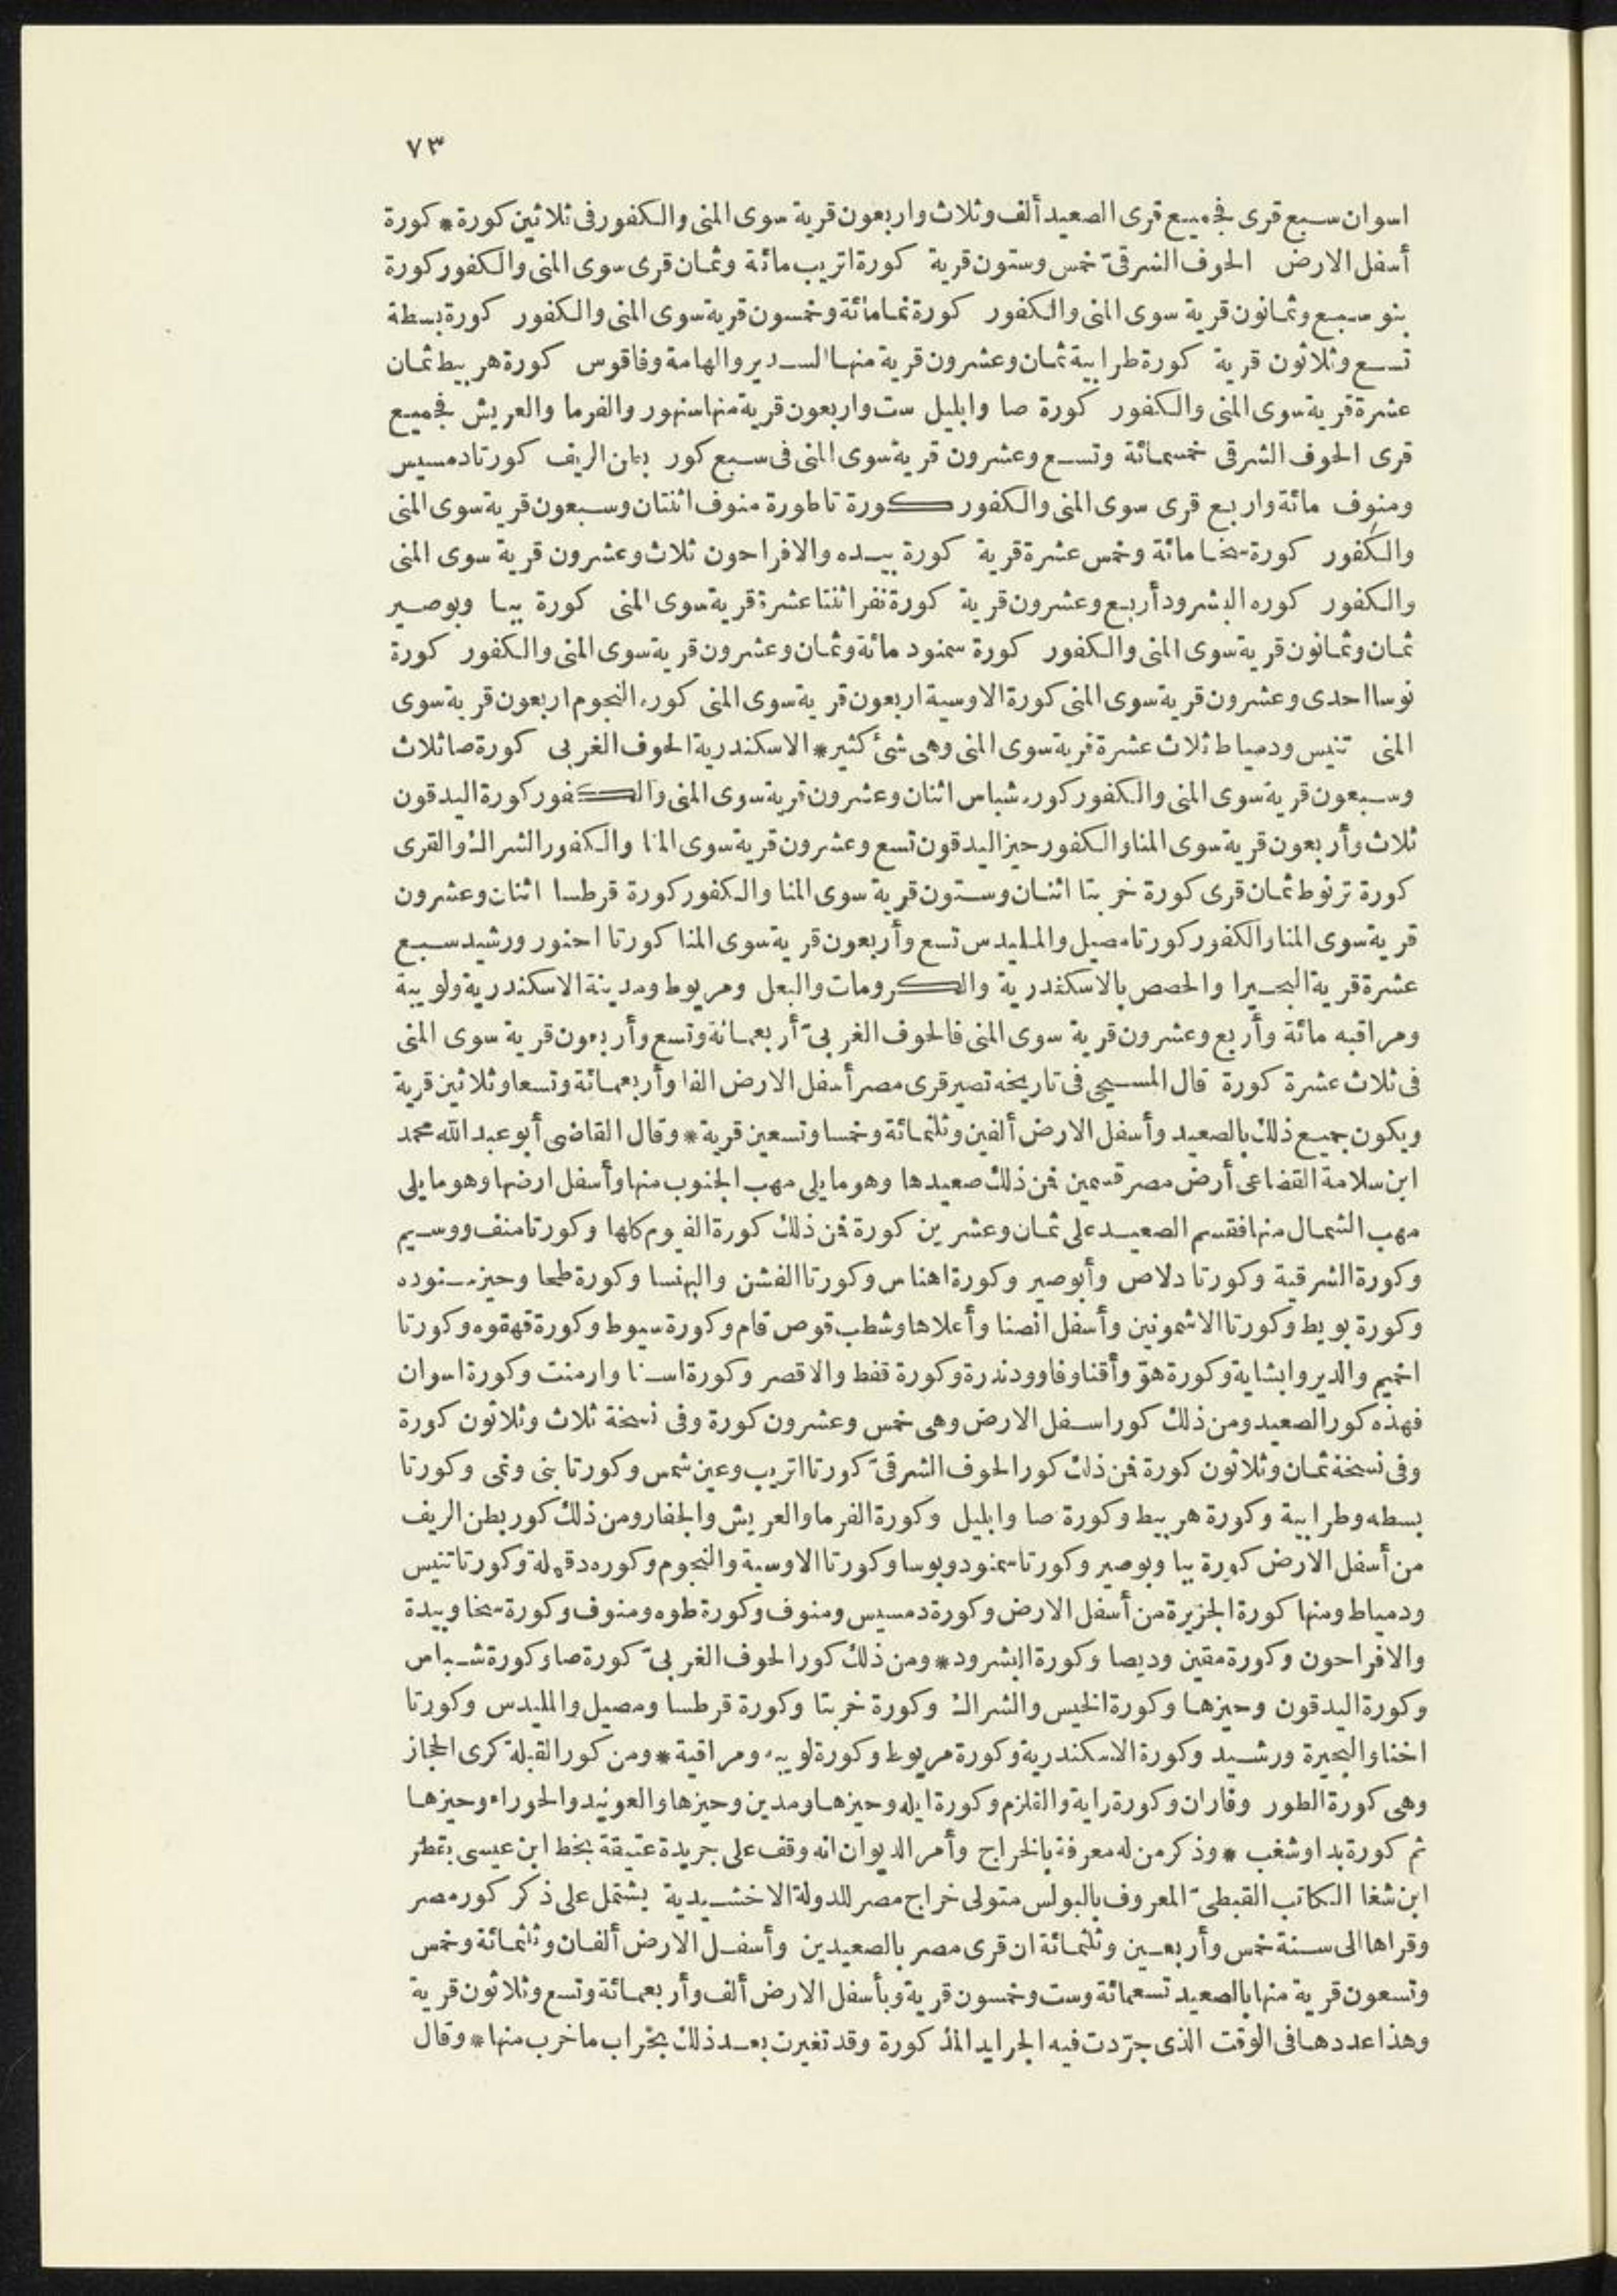 ٧٣
اسوان سبع قرى فجميع قرى الصعيد ألف وثلاث واربعون قرية سوى المنى والكفور فى ثلاثين كورة * كورة
أسفل الارض الحوف الشرقىّ خمس وستون قرية كورة اتريب مائة وثمان قرى سوى المنى والكفور كورة
بنو سبع وثمانون قرية سوى المنى والكفور كورة تما مائة وخمسون قرية سوى المنى والكفور كورة بسطة
تسع وثلاثون قرية كورة طرابية ثمان وعشرون قرية منها السدير والهامة وفاقوس كورة هربيط ثمان
عشرة قرية سوى المنى والكفور كورة صا وابليل ست واربعون قرية منها سنهور والفرما والعريش فجميع
قرى الحوف الشرقى خمسمائة وتسع وعشرون قرية سوى المنى فى سبع كور بطن الريف كورتا دمسيس
ومنوف مائة واربع قرى سوى المنى والكفور كورة تاطورة منوف اثنتان وسبعون قرية سوى المنى
والكفور كورة سخا مائة وخمس عشرة قرية كورة بيده والافراحون ثلاث وعشرون قرية سوى المنى
والكفور كوره البشرود أربع وعشرون قرية كورة نفر اثنتا عشرة قرية سوى المنى كورة ببا وبوصير
ثمان وثمانون قرية سوى المنى والكفور كورة سمنود مائة وثمان وعشرون قرية سوى المنى والكفور كورة
نوسا احدى وعشرون قرية سوى المنى كورة الاوسية اربعون قرية سوى المنى كوره النجوم اربعون قرية سوى
المنى تنيس ودمياط ثلاث عشرة قرية سوى المنى وهى شئ كثير * الاسكندرية الحوف الغربى كورة صا ثلاث
وسبعون قرية سوى المنى والكفور كوره شباس اثنان وعشرون قرية سوى المنى والكفور كورة اليدقون
ثلاث وأربعون قرية سوى المنا والكفور حيز اليدقون تسع وعشرون قرية سوى المنا والكفور الشراك والقرى
كورة ترنوط ثمان قرى كورة خربتا اثنان وستون قرية سوى المنا والكفور كورة قرطسا اثنان وعشرون
قرية سوى المنا والكفور كورتا مصيل والمليدس تسع وأربعون قرية سوى المنا كورتا احنور ورشيد سبع
عشرة قرية البحيرا والحصص بالاسكندرية والكرومات والبعل ومريوط ومدينة الاسكندرية ولوبية
ومراقيه مائة وأربع وعشرون قرية سوى المنى فالحوف الغربىّ أربعمائة وتسع وأربعون قرية سوى المنى
فى ثلاث عشرة كورة قال المسبحى فى تاريخه تصير قرى مصر أسفل الارض الفا وأربعمائة وتسعا وثلاثين قرية
ويكون جميع ذلك بالصعيد وأسفل الارض ألفين وثلثمائة وخمسا وتسعين قرية * وقال القاضى أبو عبد الله محمد
ابن سلامة القضاعى أرض مصر قسمين فمن ذلك صعيدها وهو ما يلى مهب الجنوب منها وأسفل ارضها وهو ما يلى
مهب الشمال منها فقسم الصعيد على ثمان وعشرين كورة فمن ذلك كورة الفيوم كلها وكورتا منف ووسيم
وكورة الشرقية وكورتا دلاص وأبوصير وكورة اهناس وكورتا الفشن والبهنسا وكورة طحا وحيز سنوده
وكورة بويط وكورتا الاشمونين وأسفل انصنا وأعلاها وشطب قوص قام وكورة سيوط وكورة قهقوه وكورتا
اخميم والدير وابشاية وكورة هوّ وأقنا وفاو ودندرة وكورة قفط والاقصر وكورة اسنا وارمنت وكورة اسوان
فهذه كور الصعيد ومن ذلك كور اسفل الارض وهى خمس وعشرون كورة وفى نسخة ثلاث وثلاثون كورة
وفى نسخة ثمان وثلاثون كورة فمن ذلك كور الحوف الشرقىّ كورتا اتريب وعين شمس وكورتا بنى ونمى وكورتا
بسطه وطرابية وكورة هربيط وكورة صا وابليل وكورة الفرما والعريش والجفار ومن ذلك كور بطن الريف
من أسفل الارض كورة ببا وبوصير وكورتا سمنود وبوسا وكورتا الاوسية والنجوم وكوره دقهلة وكورتا تنيس
ودمياط ومنها كورة الجزيرة من أسفل الارض وكورة دمسيس ومنوف وكورة طوه ومنوف وكورة سخا وبيدة
والافراحون وكورة مقين وديصا وكورة البشرود * ومن ذلك كور الحوف الغربىّ كورة صا وكورة شباس
وكورة اليدقون وحيزها وكورة الخيس والشراك وكورة خربتا وكورة قرطسا ومصيل والمليدس وكورتا
اخنا والبحيرة ورشيد وكورة الاسكندرية وكورة مريوط وكورة لوبيه ومراقية * ومن كور القبلة كرى الحجاز
وهى كورة الطور وفاران وكورة راية والقلزم وكورة ايله وحيزها ومدين وحيزها والعونيد والحوراء وحيزها
ثم كورة بدا وشغب * وذكر من له معرفة بالخراج وأمر الديوان انه وقف على جريدة عتيقة بخط ابن عيسى بقطر
ابن شغا الكاتب القبطىّ المعروف بالبولس متولى خراج مصر للدولة الاخشيدية يشتمل على ذكر كور مصر
وقراها الى سنة خمس وأربعين وثلثمائة ان قرى مصر بالصعيدين وأسفل الارض ألفان وثلثمائة وخمس
وتسعون قرية منها بالصعيد تسعمائة وست وخمسون قرية وبأسفل الارض ألف وأربعمائة وتسع وثلاثون قرية
وهذا عددها فى الوقت الذى جرّدت فيه الجرايد المذكورة وقد تغيرت بعد ذلك بخراب ما خرب منها * وقال